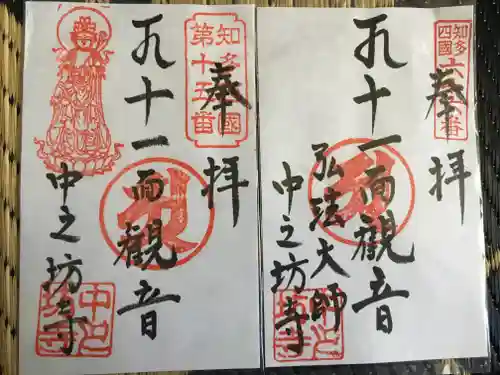 知多四國
六十六番
奉拝
十一面觀音
弘法大師
中之坊寺
中之坊寺
知多西國
第十五番
奉拝
十一面觀音
中之坊寺
中之坊寺